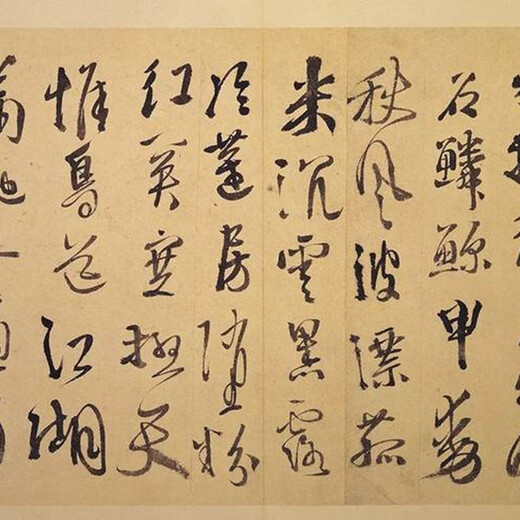 石鱗鯨甲動
秋風波漂菰
米沉雲黑露
冷蓮房墜粉
紅關塞極天
惟鳥道江湖
滿地一漁翁